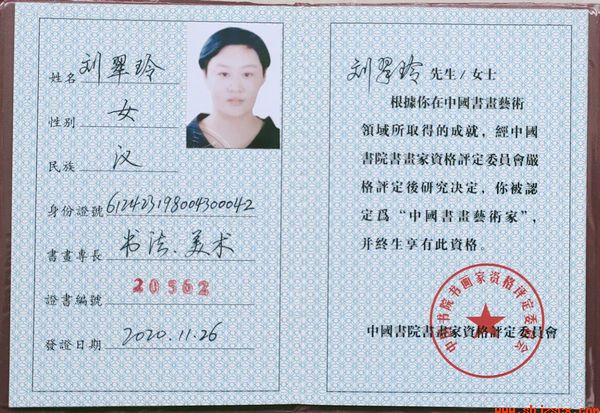 姓名 刘翠玲
性别 女
民族 汉
身份證號 612423198004300042
書畫專長 书法、美术
證書編號 20562
發證日期 2020.11.26
刘翠玲 先生/女士
根據你在中國書畫藝術
領域所取得的成就，經中國
書院書畫家資格評定委員會嚴
格評定後研究决定，你被認
定爲“中國書畫藝術家”，
并終生享有此資格。
中國書院書畫家資格評定委員會
中国书院书画家资格评定委员会